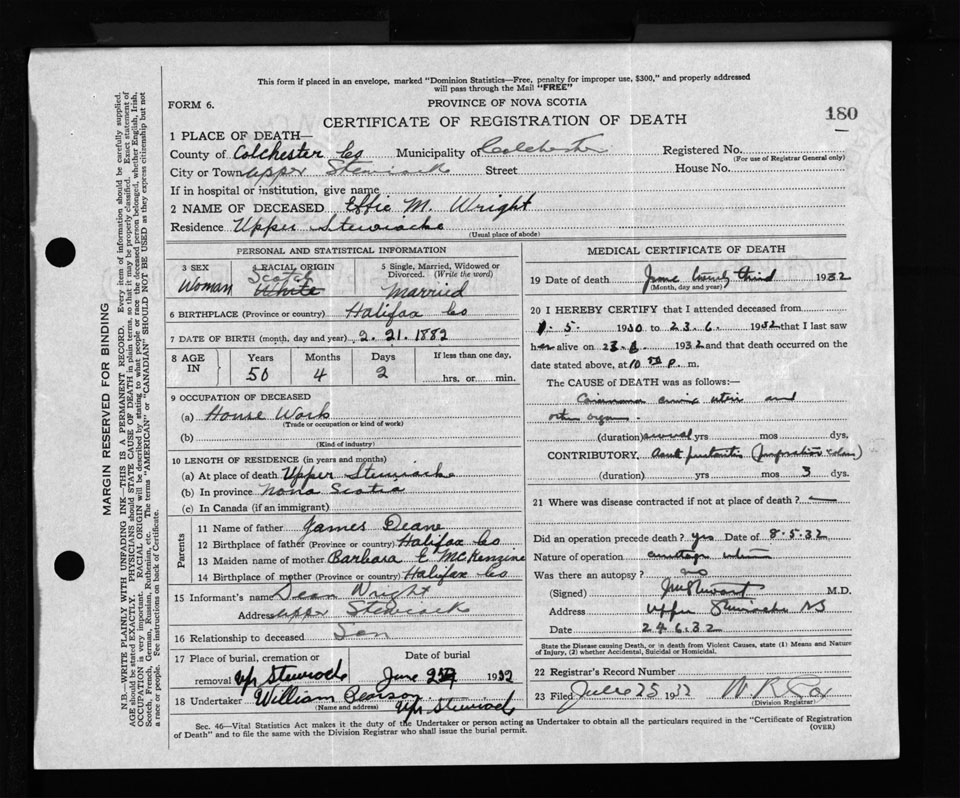 This form if placed in an envelope, marked "Dominion Statistics—Free, penalty for improper use, $300," and properly addressed
will pass through the Mail "FREE"
FORM 6.
PROVINCE OF NOVA SCOTIA
CERTIFICATE OF REGISTRATION OF DEATH
180
1 PLACE OF DEATH—
County of Colchester Co Municipality of Colchester Registered No.
(For use of Registrar General only)
City or Town Upper Stewiacke Street House No.
If in hospital or institution, give name
2 NAME OF DECEASED Effie M. Wright
Residence Upper Stewiacke
(Usual place of abode)
PERSONAL AND STATISTICAL INFORMATION
3 SEX Woman
4 RACIAL ORIGIN Scotch White
5 Single, Married, Widowed or Divorced. (Write the word) Married
6 BIRTHPLACE (Province or country) Halifax Co
7 DATE OF BIRTH (month, day and year) 2. 21. 1882
8 AGE IN Years Months Days If less than one day,
50 4 2 hrs. or min.
9 OCCUPATION OF DECEASED
(a) House Work
(Trade or occupation or kind of work)
(b)
(Kind of industry)
10 LENGTH OF RESIDENCE (in years and months)
(a) At place of death Upper Stewiacke
(b) In province Nova Scotia
(c) In Canada (if an immigrant)
Parents
11 Name of father James Deane
12 Birthplace of father (Province or country) Halifax Co
13 Maiden name of mother Barbara E McKenzine
14 Birthplace of mother (Province or country) Halifax Co
15 Informant's name Dean Wright
Address Upper Stewiacke
16 Relationship to deceased Son
17 Place of burial, cremation or removal Date of burial
Up Stewiacke June 1932
18 Undertaker William Pearson
(Name and address) Up Stewiacke
MEDICAL CERTIFICATE OF DEATH
19 Date of death June twenty third 1932
(Month, day and year)
20 I HEREBY CERTIFY that I attended deceased from
5. 1930 to 23. 6. 1932 that I last saw
her alive on 23. 6. 1932 and that death occurred on the
date stated above, at 10 p. m.
The CAUSE of DEATH was as follows:—
Carcinoma cervix uteri and
other organs
(duration) several yrs mos dys.
CONTRIBUTORY. Acute peritonitis (perforation colon)
(duration) yrs mos 3 dys.
21 Where was disease contracted if not at place of death?
Did an operation precede death? yes Date of 8-5-32
Nature of operation
Was there an autopsy? no
(Signed) M.D.
Address Upper Stewiacke NS
Date 24 6. 32
State the Disease causing Death, or in death from Violent Causes, state (1) Means and Nature
of Injury, (2) whether Accidental, Suicidal or Homicidal.
22 Registrar's Record Number
23 Filed June 25 1932 W R Cox
(Division Registrar)
Sec. 46—Vital Statistics Act makes it the duty of the Undertaker or person acting as Undertaker to obtain all the particulars required in the "Certificate of Registration
of Death" and to file the same with the Division Registrar who shall issue the burial permit.
(OVER)
MARGIN RESERVED FOR BINDING
N.B.—WRITE PLAINLY WITH UNFADING INK—THIS IS A PERMANENT RECORD. Every item of information should be carefully supplied.
AGE should be stated EXACTLY. PHYSICIANS should STATE CAUSE OF DEATH in plain terms, so that it may be properly classified. Exact statement of
OCCUPATION is very important. RACIAL ORIGIN will be described by stating to what people or race the deceased person belonged, whether English, Irish,
Scotch, French, German, Russian, Ruthenian, etc. The terms "AMERICAN" or "CANADIAN" SHOULD NOT BE USED as they express citizenship but not
a race or people. See instructions on back of Certificate.